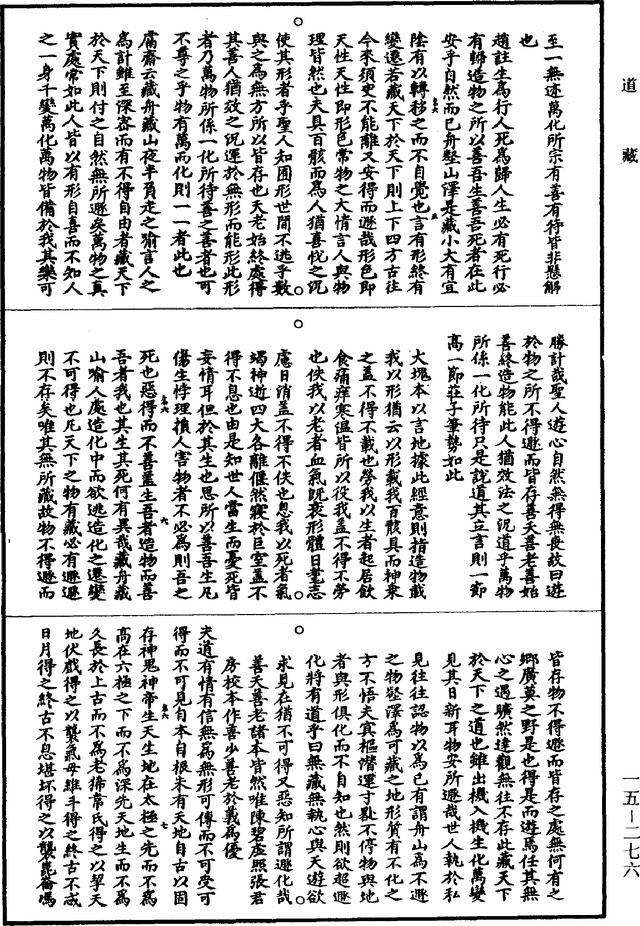 道藏
至一無迹萬化所宗有善有待皆非懸解
也
趙註生為行人死為歸人生必有死行必
有歸造物之所以善吾生善吾死者在此
安乎自然而已舟壑山澤是藏小大有宜
陰有以轉移之而不自覺也言有形終有
變遷若藏天下於天下則上下四方古往
今來須臾不能離又安得而遯哉形色即
天性天性即形色常物之大情言人與物
理皆然也夫具百骸而為人猶喜悅之況
使其形者乎聖人知囿形世間不逃乎數
與之為無方所以皆存也夭老始終處得
其善人猶效之況運於無形而能形此形
者乃萬物所係一化所待善之善者也可
不尊之乎物有萬而化則一一者此也
庸齋云藏舟藏山夜半負走之喻言人之
為計雖至深密而有不得自由者藏天下
於天下則付之自然無所遯矣萬物之真
實處常如此人皆以有形自喜而不知人
之一身千變萬化萬物皆備於我其樂可
勝計哉聖人遊心自然無得無喪故曰遊
於物之所不得遯而皆存善夭善老善始
善終造物能此人猶效法之況道乎萬物
所係一化所待只是說道其立言則一節
高一節莊子筆勢如此
大塊本以言地據此經意則指造物載
我以形猶云以形載我百骸具而神乘
之蓋不得不載也勞我以生者起居飲
食痛痒寒溫皆所以役我蓋不得不勞
也佚我以老者血氣既衰形體日耄志
慮日消蓋不得不佚也息我以死者氣
竭神逝四大各離偃然寢於巨室蓋不
得不息也由是知世人當生而憂死皆
妄情耳但於其生也思所以善吾生凡
傷生悖理損人害物者不必為則吾之
死也惡得而不善蓋生吾者造物而善
吾者我也其生其死何有異哉藏舟藏
山喻人處造化中而欲逃造化之遷變
不可得也凡天下之物有藏必有遯遯
則不存矣唯其無所藏故物不得遯而
皆存物不得遯而皆存之處無何有之
鄉廣莫之野是也得是而遊焉任其無
心之遇曠然達觀無往不存此藏天下
於天下之道也雖出機入機生化萬變
見其日新耳物安所遯哉世人執於私
見往往認物以為已有謂舟山為不遯
之物壑澤為可藏之地形質有不化之
方不悟夫真樞潛運寸晷不停物與地
者與形俱化而不自知也然則欲超遯
化將有道乎曰無藏無執心與天遊欲
求見在猶不可得又惡知所謂遯化哉
善夭善老諸本皆然唯陳碧虛照張君
房校本作善少善老於義為優
夫道有情有信無為無形可傳而不可受可
得而不可見自本自根未有天地自古以固
存神鬼神帝生天生地在太極之先而不為
高在六極之下而不為深先天地生而不為
久長於上古而不為老狶韋氏得之以挈天
地伏戲得之以襲氣母維斗得之終古不忒
日月得之終古不息堪坏得之以襲崑崙馮
一五－二七六